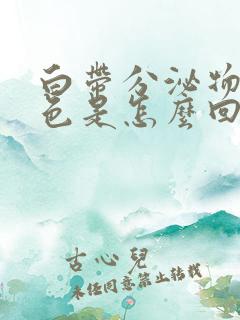 白帶分泌物
色是怎麼回
古心兒
未经同意禁止转载